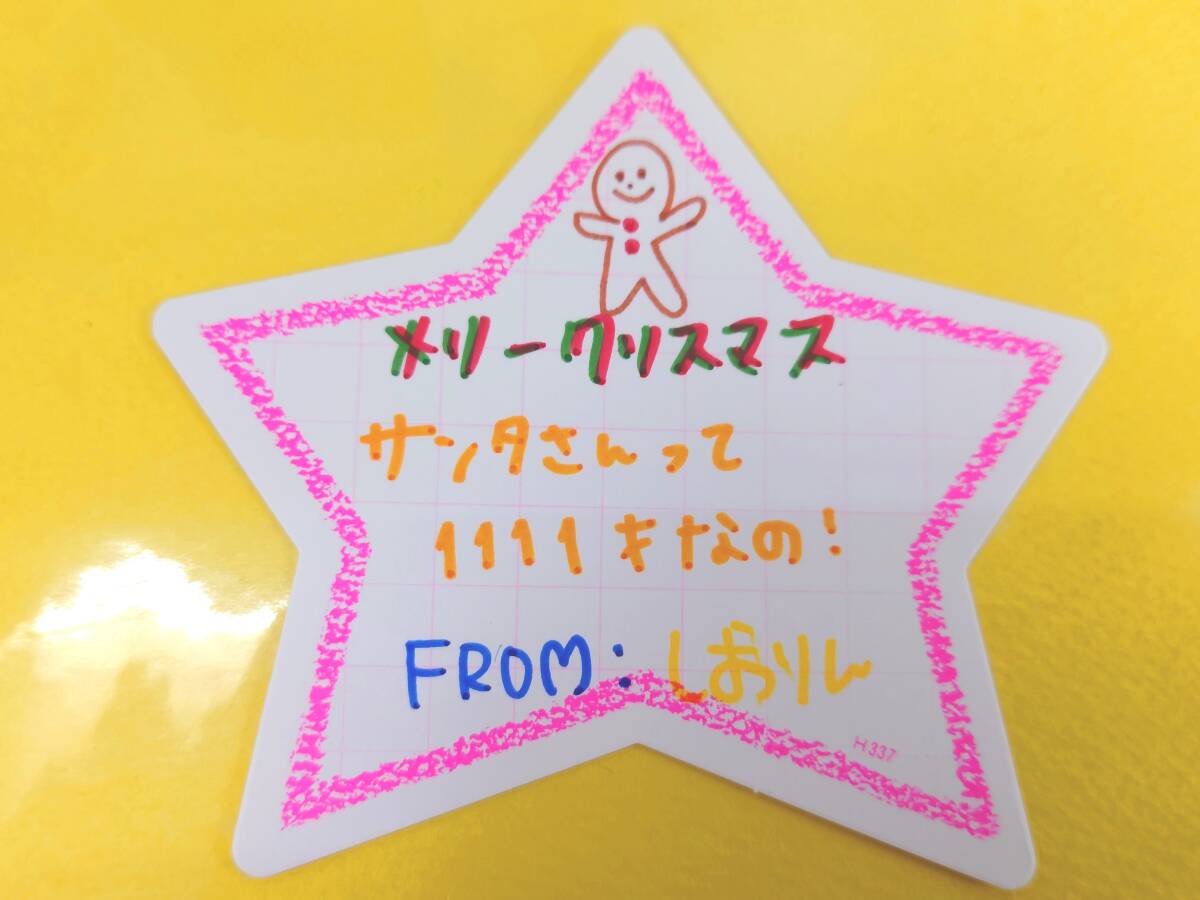 メリークリスマス
サンタさんって
1111才なの!
FROM:しおりん
H337